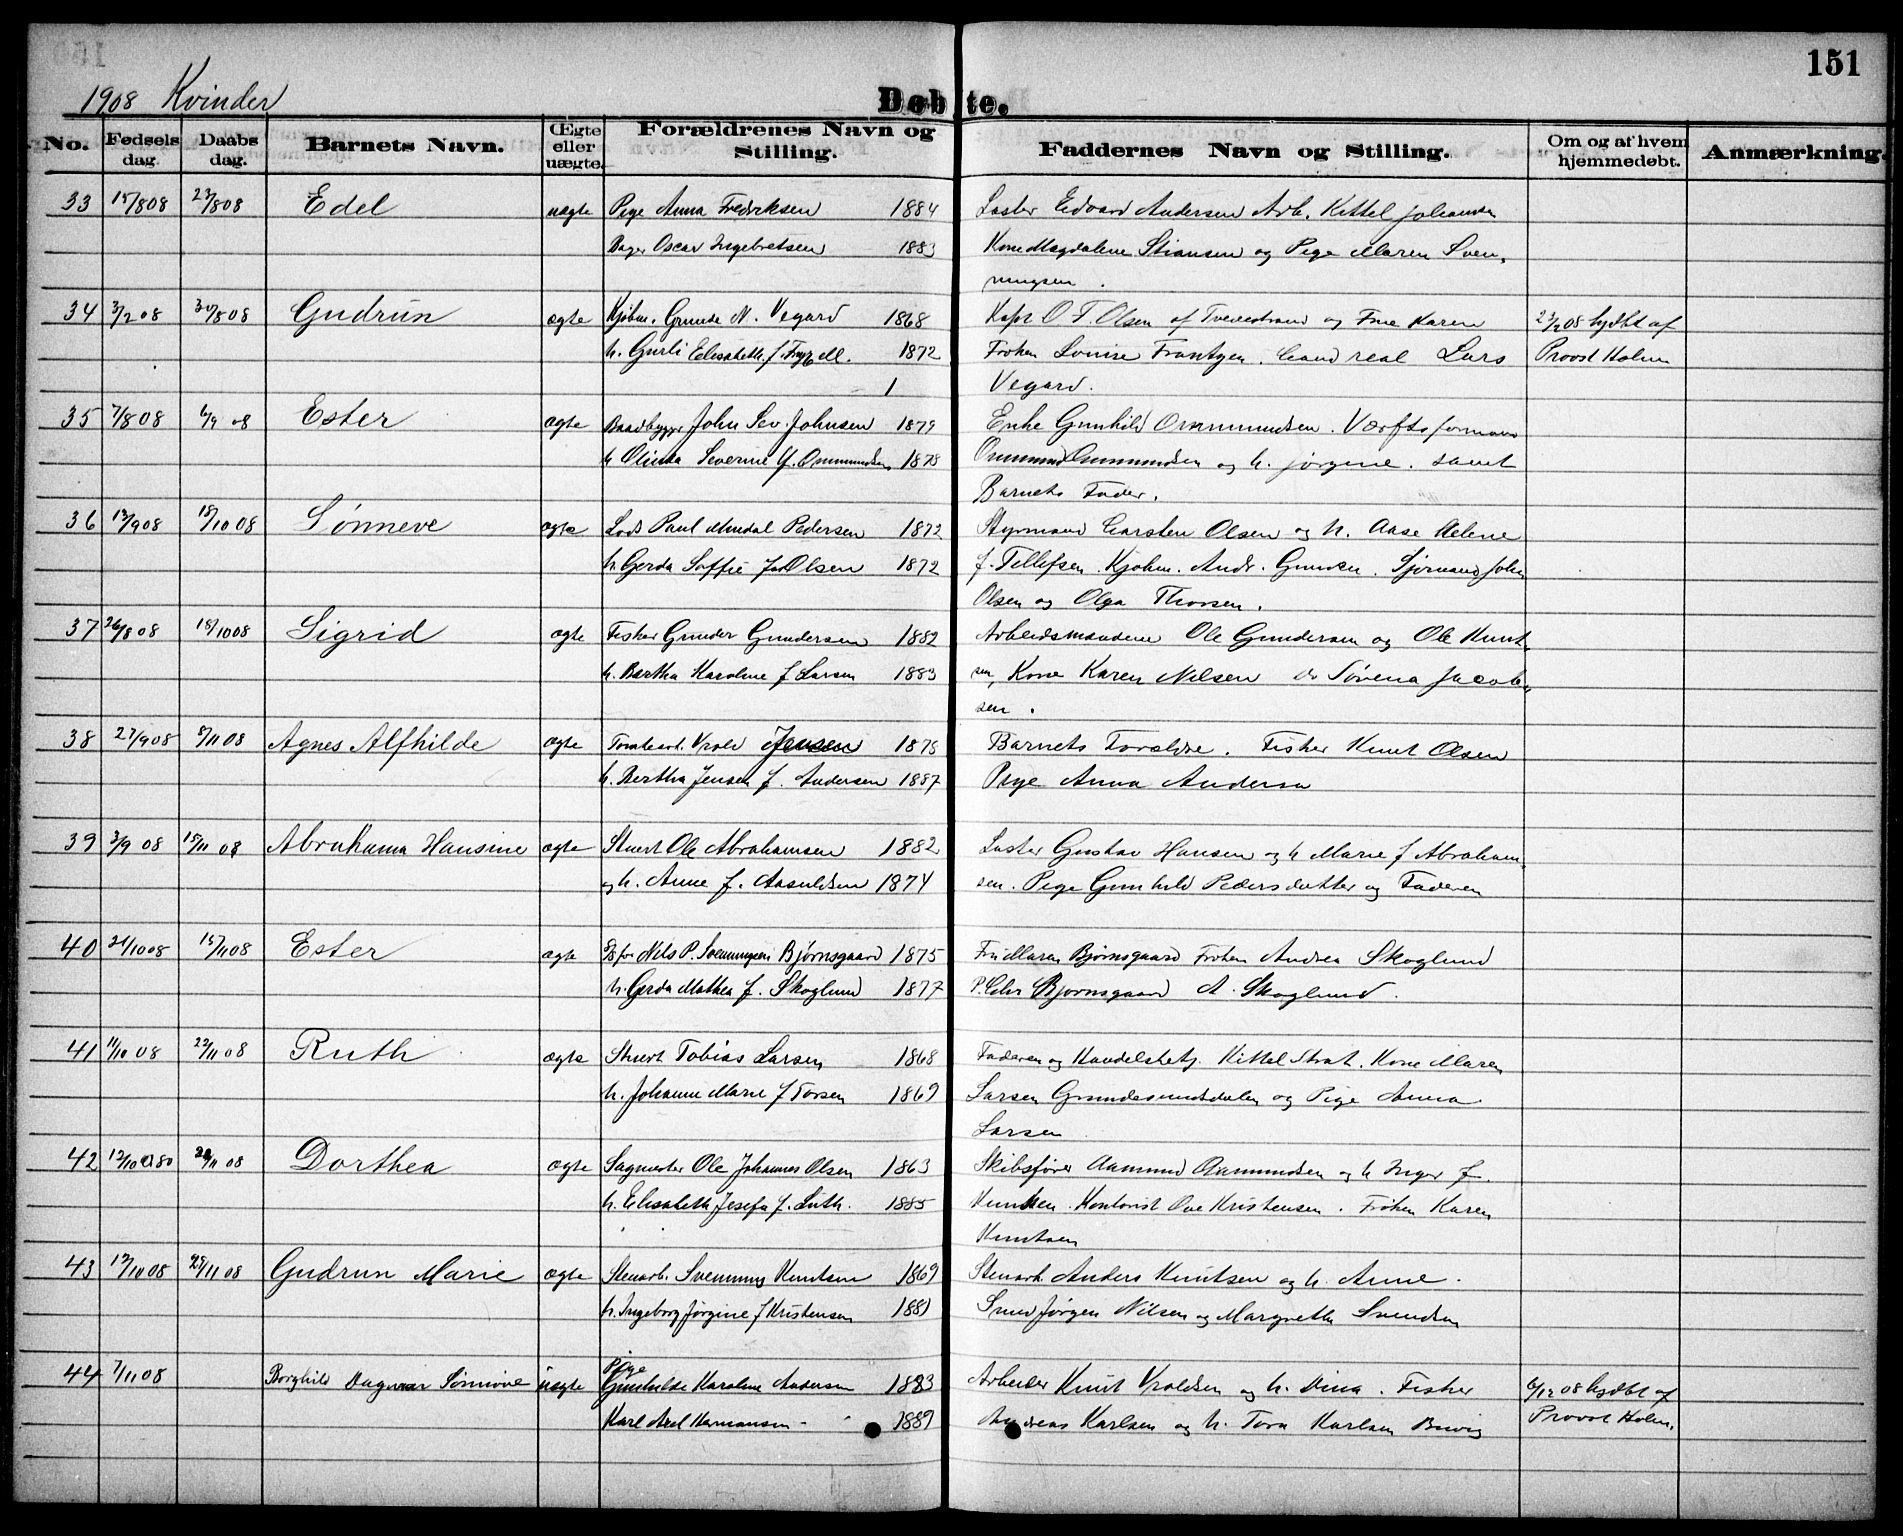 151
1908 Kvinder
Døbte.
No. Fødsels dag. Daabs dag. Barnets Navn. Ægte eller uægte. Forældrenes Navn og Stilling. Faddernes Navn og Stilling. Om og af hvem hjemmedøbt. Anmærkning.
33 15/8 08 23/8 08 Edel uægte Pige Anna Fredriksen 1884 Laster Edvard Andersen Arb. Kittel Johansen
Oscar Ingebretsen 1883 Kone Magdalene Stiansen og Pige Maren Sven,
ningsen.
34 3/2 08 30/8 08 Gudrun ægte Kjøbm. Grunde N. Vegard 1868 Kapt O T. Olsen af Tvedestrand og Frue Karen 23/2 08 hjdbt af
h. Gurli Elisabeth f 1872 Frøken Louise Frantzen. Cand real Lars Provst Holm
Vegard.
35 7/8 08 6/9 08 Ester ægte Baadbygger John Sev. Johnsen 1879 Enke Gunhild Ommundsen. Værftsformand
h Olinda Severine f. Ommundsen 1878 Ommund Ommundsen og h. Jørgine. samt
Barnets Fader.
36 13/9 08 18/10 08 Sønneve ægte Lods Paul Amdal Pedersen 1872 Styrmand Carsten Olsen og h. Aase Helene
h. Gerda Soffie f Olsen 1872 f. Tellefsen. Kjøbm. Andr. Gundersen. Sjømand John
Olsen og Olga Thorsen.
37 26/8 08 18/10 08 Sigrid ægte Fisker Gunder Gundersen 1882 Arbeidsmændene Ole Gundersen og Ole Knut-
h. Bertha Karoline f Larsen 1883 sen, Kone Karen Nilsen do Sørena Jacob-
sen.
38 27/9 08 8/11 08 Agnes Alfhilde ægte Vrold Jensen 1878 Barnets Forældre. Fisker Knut Olsen
h. Bertha Jensen f. Andersen 1887 Pige Anna Andersen
39 3/9 08 15/11 08 Abrahama Hansine ægte Stuert Ole Abrahamsen 1882 Laster Gustav Hansen og h Marie f Abraham-
og h. Anne f. Aasuldsen 1874 sen. Pige Gunhild Pedersdatter og Faderen
40 21/10 08 15/11 08 Ester ægte Nils P. Svenningsen Bjørnsgaard 1875 Fru Maren Bjørnsgaard Frøken Andrea Skoglund
h. Gerda Mathea f. Skoglund 1877 P. Chr Bjørnsgaard A. Skoglund.
41 11/10 08 22/11 08 Ruth ægte Stuert Tobias Larsen 1868 Faderen og Handelsbetj. Kittel Strat. Kone Maren
h. Johanne Marie f Torsen 1869 Larsen Grundesundsdalen og Pige Anna
Larsen
42 12/10 08 /11 08 Dorthea ægte Sagmester Ole Johannes Olsen 1863 Skibsfører Aamund Aamundsen og h Inger f.
h. Elisabeth Josefa f. Luth. 1885 Knutsen. Kontorist Ove Kristensen. Frøken Karen
Knutsen
43 17/10 08 29/11 08 Gudrun Marie ægte Stenarb. Svenning Knutsen 1869 Stenarb. Anders Knutsen og h. Anne.
h. Ingeborg Jørgine f Kristensen 1881 Smed Jørgen Nilsen og Margrethe Svendsen
44 7/11 08 Borghild Dagmar Sønnøve uægte Pige Gunhilde Karoline Andersen 1883 Arbeider Knut Vroldsen og h. Dina. Fisker 6/12 08 hjdbt af
Karl Axel Hermansen 1889 Andreas Karlsen og h. Tora Karlsen Provst Holm.